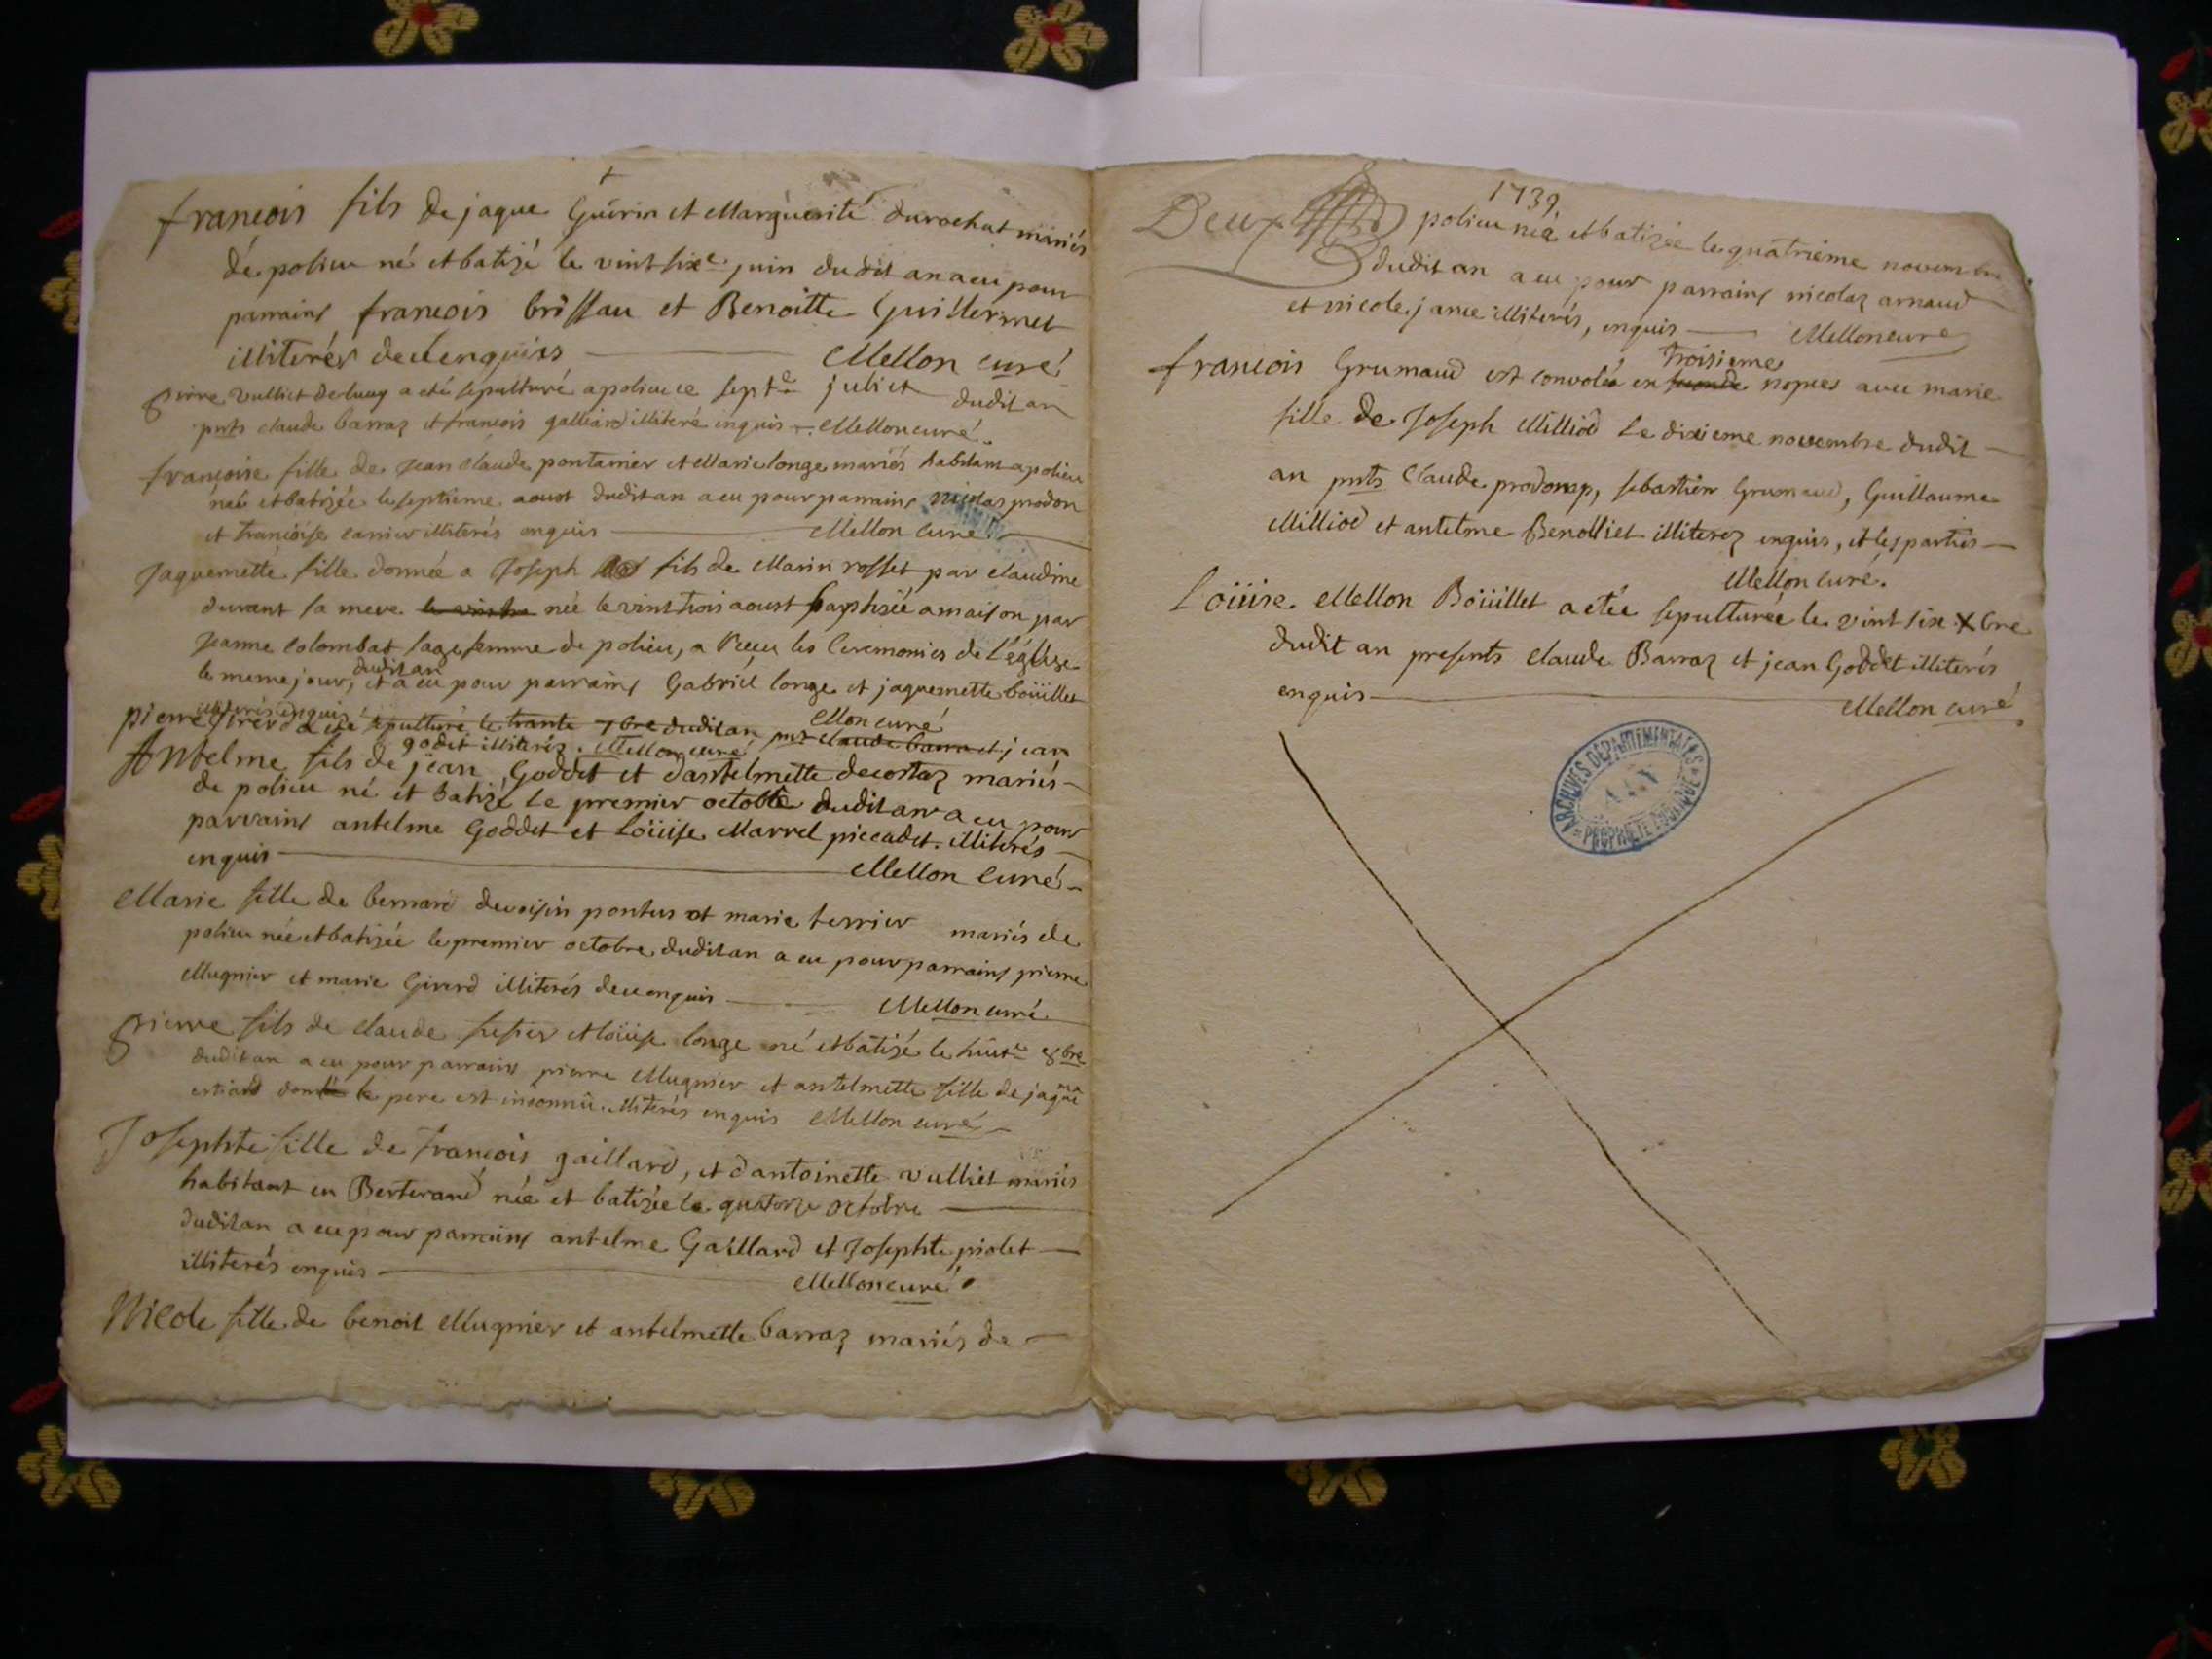 francois fils de jaque Guérin et Marguerite durochat mariés
de polieu né et batizé le vint sixe juin dudit an a eu pour
parrains francois brissau et Benoitte Guillermet
illiterés de ce enquis Mellon curé
pierre vulliet de luey a eté sepulturé a polieu ce septe juliet dudit an
pnts claude barraz et francois galliard illiteré enquis Mellon curé
francoise fille de jean claude pontanier et Marie longe mariés habitant a polieu
née et batizée le septieme aoust dudit an a eu pour parrains nicolas prodon
et francoise carrier illiterés enquis Mellon curé
Jaquemette fille donnée a Joseph fils de Marin rosset par claudine
durant sa mere née le vint trois aoust baptisée a maison par
jeanne colombat sage femme de polieu, a reçu les Ceremonies de l'église
le meme jour, dudit an et a eu pour parrains Gabriel longe et jaquemette boüillet
illiterés enquis Mellon curé
pierre Girerd a eté sepulturé le trante 7bre dudit an pnt claude barra et jean
godet illiterés. Mellon curé
Antelme fils de jean Goddet et d'antelmette decortaz mariés
de polieu né et batizé le premier octobre dudit an a eu pour
parrains antelme Goddet et Loüise Marrel piccadet. illiterés
enquis Mellon curé
Marie fille de bernard devoisin pontus et marie terrier mariés de
polieu née et batizée le premier octobre dudit an a eu pour parrains pierre
Mugnier et marie Girerd illiterés de ce enquis Mellon curé
pierre fils de claude et loüise longe né et batizé le huite 8bre
dudit an a eu pour parrains pierre Mugnier et antelmette fille de jaqme
le pere est inconnü. illiterés enquis Mellon curé
Josephte fille de francois gaillard, et d'antoinette vulliet mariés
habitant en Berterand née et batizée le quatorze octobre
dudit an a eu pour parrains antelme Gaillard et Josephte piolet
illiterés enquis Mellon curé
Nicole fille de benoit Mugnier et antelmette barraz mariés de
1739
Deux polieu née et batizée le quatrieme novembre
dudit an a eu pour parrains nicolaz arnaud
et nicole jance illiterés, enquis Mellon curé
francois Grumaud est convolé en seconde troisieme nopces avec marie
fille de Joseph Milliod le dixieme novembre dudit
an pnts Claude prodonap, sebastien Grumaud, Guillaume
Milliod et antelme Benolliet illiterez enquis, et les parties
Mellon curé.
Loüise Mellon Boüillet a etée sepulturée le vint six Xbre
dudit an presents claude Barraz et jean Goddet illiterés
enquis Mellon curé
ARCHIVES DÉPARTEMENTALES
AIN
PROPRIÉTÉ PUBLIQUE